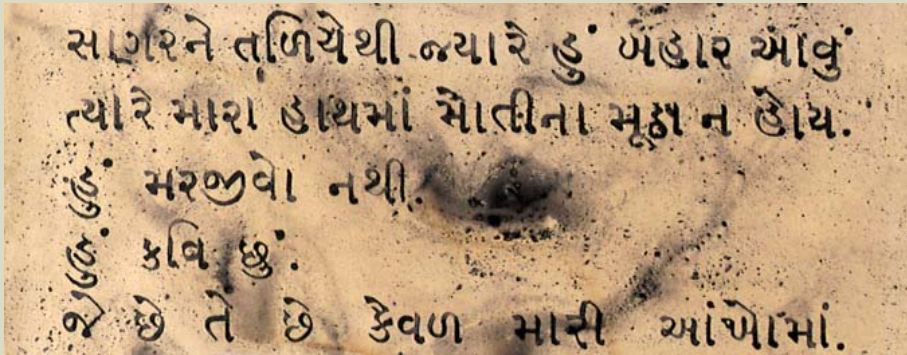 સાગરને તળિયેથી જ્યારે હું બહાર આવું
ત્યારે મારા હાથમાં મોતીના મૂઠ્ઠા ન હોય.
હું મરજીવો નથી.
હું કવિ છું.
જે છે તે છે કેવળ મારી આંખોમાં.